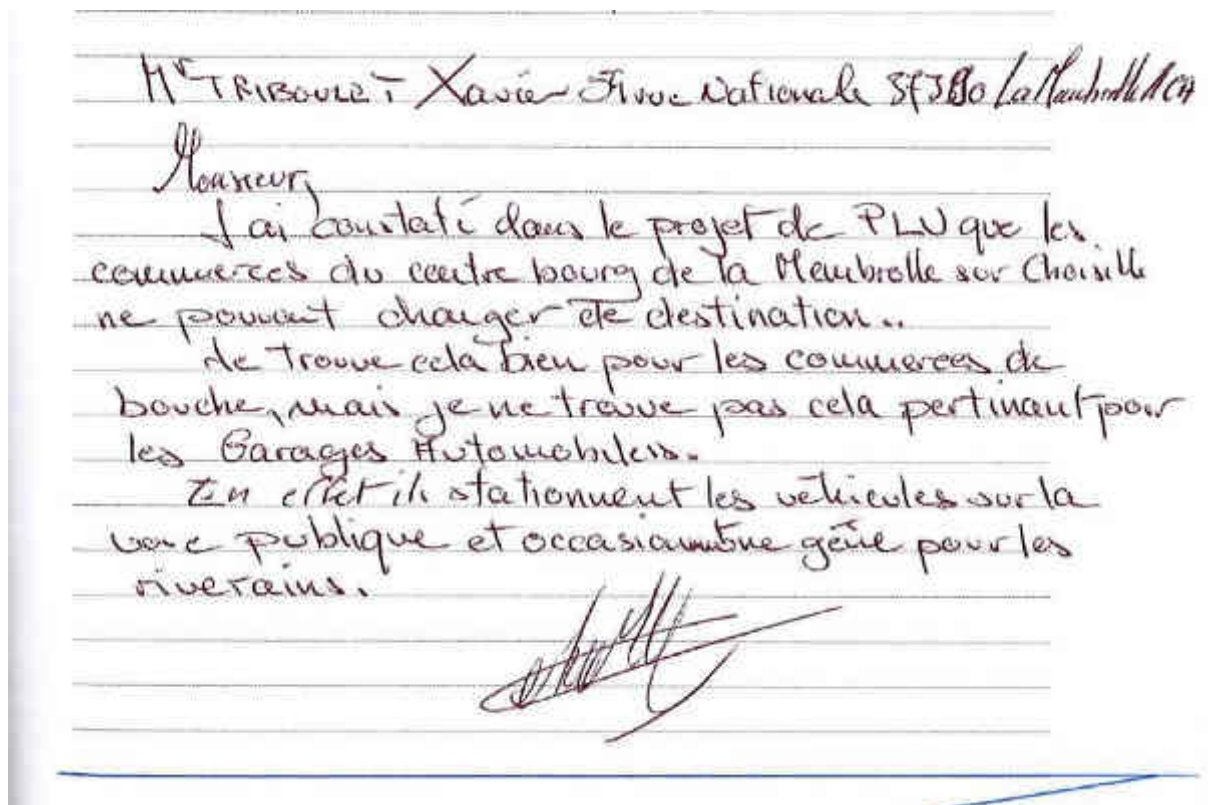 Mr TRIBOULET Xavier rue Nationale 37390 La Membrolle/CH
Monsieur,
J'ai constaté dans le projet de PLU que les
commerces du centre bourg de la Membrolle sur Choisille
ne pouvait changer de destination..
Je trouve cela bien pour les commerces de
bouche, mais je ne trouve pas cela pertinant pour
les Garages Automobiles.
En effet ils stationnent les véhicules sur la
voie publique et occasionne gêne pour les
riverains.